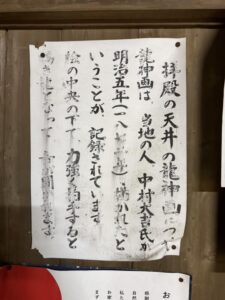 拝殿の天井の龍神画につ
龍神画は、当地の人 中村大吉氏が
明治五年(一八七二年)に描かれたと
いうことが、記録されています
絵の中央の下で力強く拍手すると
鳴き龍となって
お